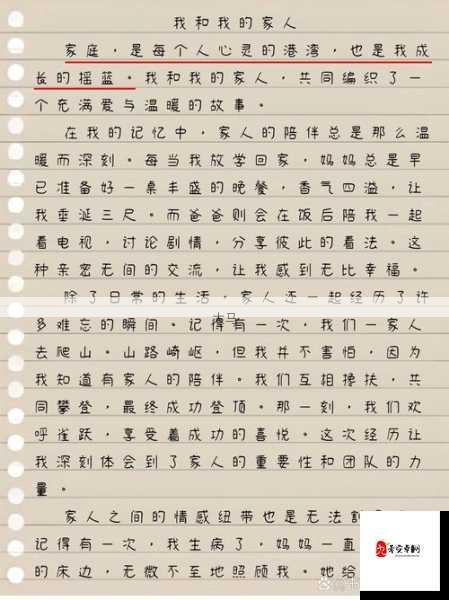 我和我的家人
家庭，是每个人心灵的港湾，也是我成
长的摇篮。我和我的家人，共同编织了一
个充满爱与温暖的故事。
在我的记忆中，家人的陪伴总是那么温
暖而深刻。每当我放学回家，妈妈总是早
已准备好一桌丰盛的晚餐，香气四溢，让
我垂涎三尺。而爸爸则会在饭后陪我一起
看电视，讨论剧情，分享彼此的看法。这
种亲密无间的交流，让我感到无比幸福。
除了日常的生活，家人还一起经历了许
多难忘的瞬间。记得有一次，我们一家人
去爬山。山路崎岖，但我并不害怕，因为
我知道有家人的陪伴。我们互相搀扶，共
同攀登，最终成功登顶。那一刻，我们欢
呼雀跃，享受着成功的喜悦。这次经历让
我深刻体会到了家人的重要性和团队的力
量。
家人之间的情感纽带也是无法
记得有一次，我生病了，妈妈一直
的床边，无微不至地照顾我。她给